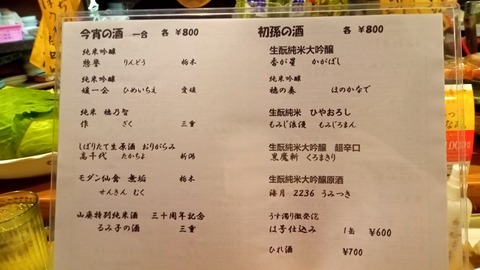 今宵の酒 一合 各 ¥800
純米吟醸
惣誉 りんどう 栃木
純米吟醸
媛一会 ひめいちえ 愛媛
純米 穂乃智
作 ざく 三重
しぼりたて生原酒 おりがらみ
高千代 たかちよ 新潟
モダン仙禽 無垢 栃木
せんきん むく
山廃特別純米酒 三十周年記念
るみ子の酒 三重
初孫の酒 各 ¥800
生酛純米大吟醸
香が星 かがぼし
純米吟醸
穂の奏 ほのかなで
生酛純米 ひやおろし
もみじ浪漫 もみじろまん
生酛純米大吟醸 超辛口
黒魔斬 くろまきり
生酛純米大吟醸原酒
海月 2236 うみつき
うす濁り微発泡
は子仕込み 1缶 ¥600
ひれ酒 ¥700